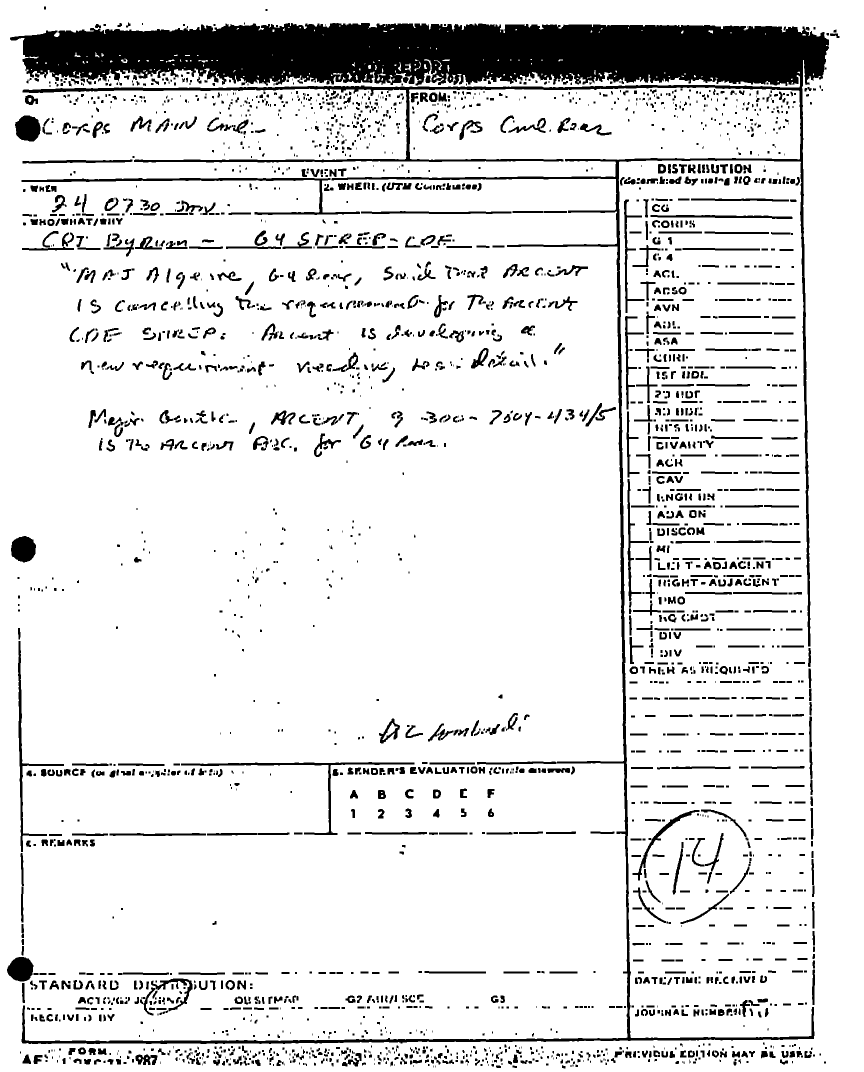 REPORT
O:
FROM:
Corps MAIN Cml
Corps Cml Rear
EVENT
DISTRIBUTION
(determined by using HQ or units)
. WHEN
2. WHERE (UTM Coordinates)
24 0730 JAN
. WHO/WHAT/WHY
CPT Byrum - G4 SITREP-CDE
"MAJ Algeire, G4 Rear, Said That ARCENT
is cancelling the requirement for The ARCENT
CDE SITREP. Arcent is developing a
new requirement needing less detail."
Major , ARCENT, 9-300-7504-434/5
is The ARCENT for G4 Rear.
CG
CORPS
G 1
G 4
ADSO
AVN
ASA
1ST BDE
2D BDE
3D BDE
RES BDE
DIVARTY
ACR
CAV
ENGR BN
ADA BN
DISCOM
MI
LEFT-ADJACENT
RIGHT-ADJACENT
PMO
HQ CMDT
DIV
DIV
OTHER AS REQUIRED
Lombardi
4. SOURCE (original supplier of info)
5. SENDER'S EVALUATION (Circle answers)
A B C D E F
1 2 3 4 5 6
6. REMARKS
14
STANDARD DISTRIBUTION:
DATE/TIME RECEIVED
JOURNAL G2 AIR/FSCE G3
RECEIVED BY
JOURNAL NUMBER
FORM
987
PREVIOUS EDITION MAY BE USED.